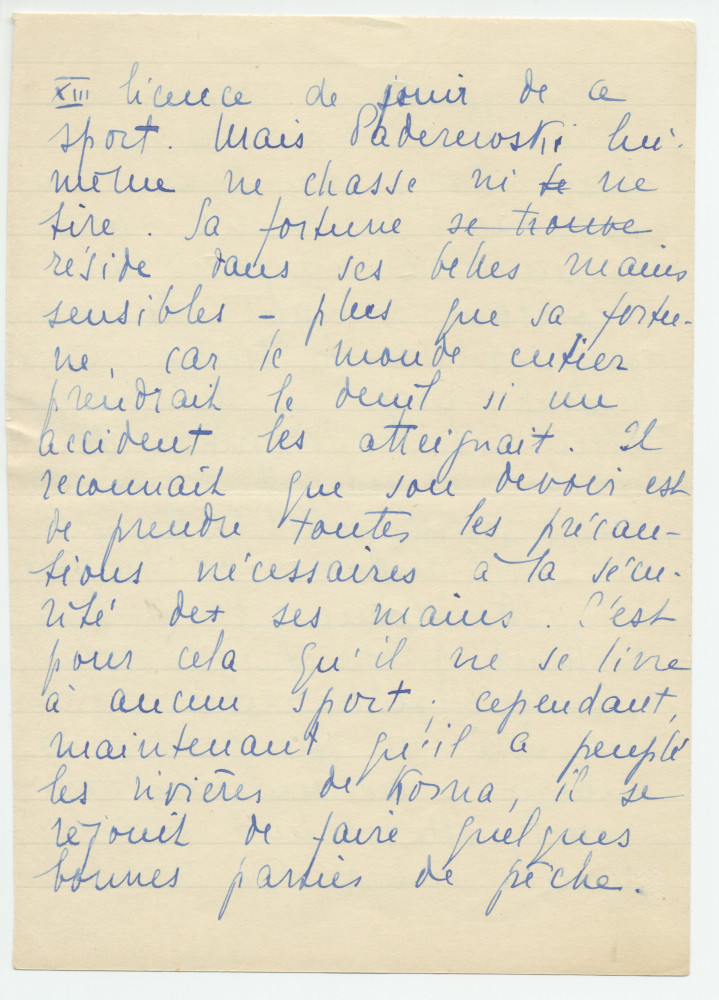 XIII licence de jouir de ce
sport. Mais Paderewski lui-
même ne chasse ni te ne
tire. Sa fortune se trouve
réside dans ses belles mains
sensibles – plus que sa fortu-
ne, car le monde entier
prendrait le deuil si un
accident les atteignait. Il
reconnait que son devoir est
de prendre toutes les précau-
tions nécessaires à la sécu-
rité de ses mains. C'est
pour cela qu'il ne se livre
à aucun sport; cependant,
maintenant qu'il a peuplé
les rivières de Kosna, il se
réjouit de faire quelques
bonnes parties de pêche.